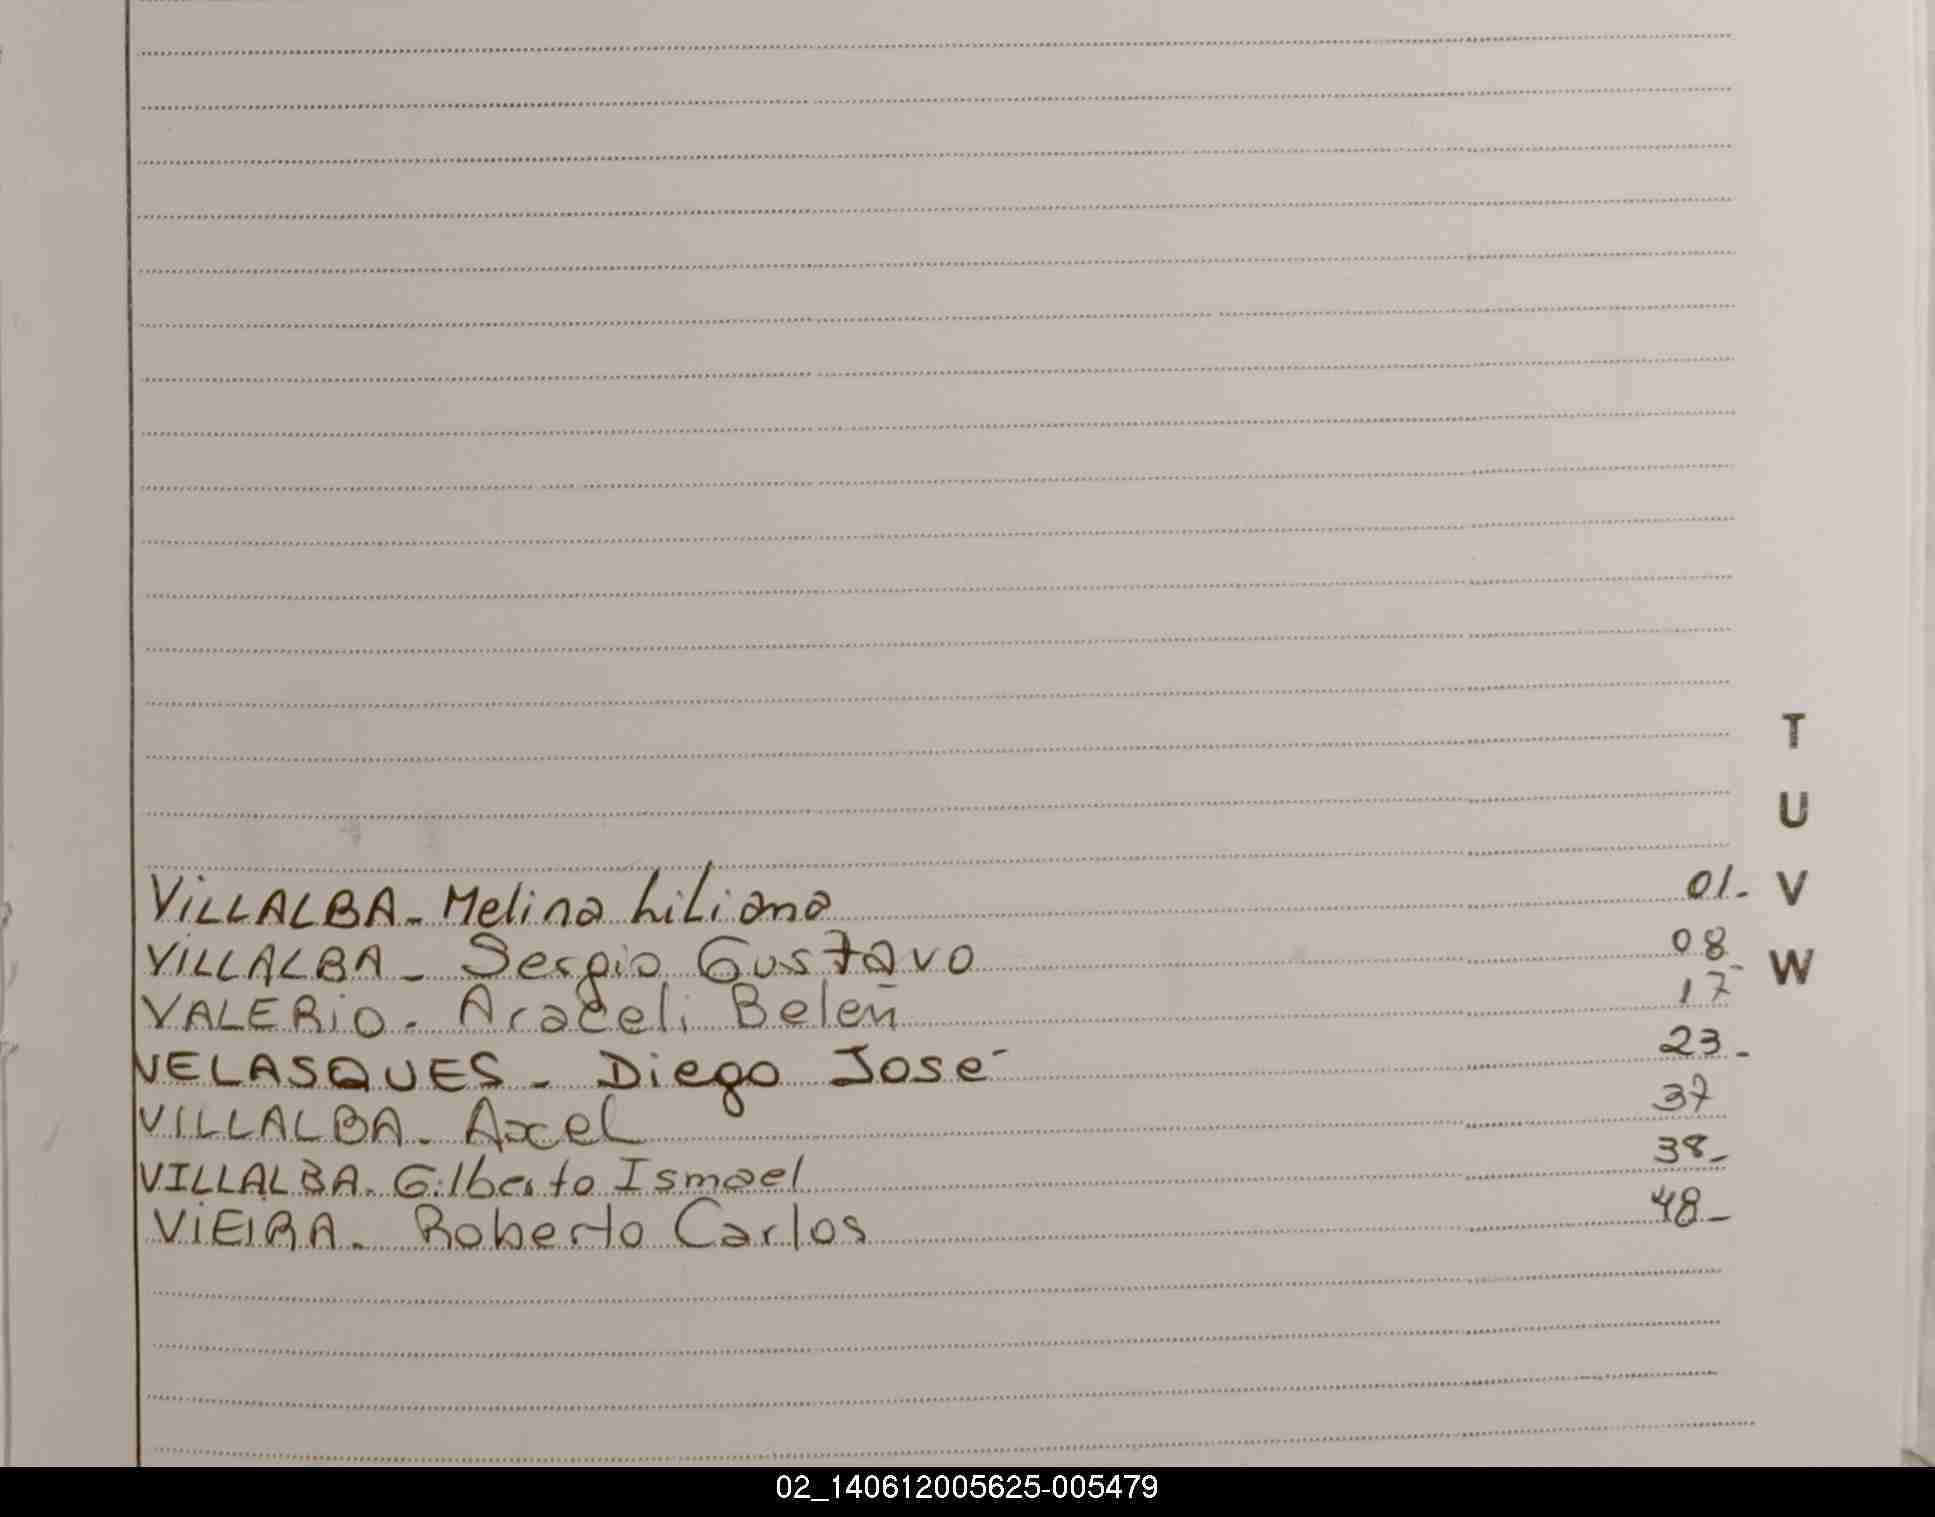 T
U
V
W
VILLALBA - Melina Liliana 01-
VILLALBA - Sergio Gustavo 08
VALERIO - Araceli Belén 17-
VELASQUES - Diego José 23-
VILLALBA - Axel 37
VILLALBA - Gilberto Ismael 38-
VIEIRA - Roberto Carlos 48-
02_140612005625-005479